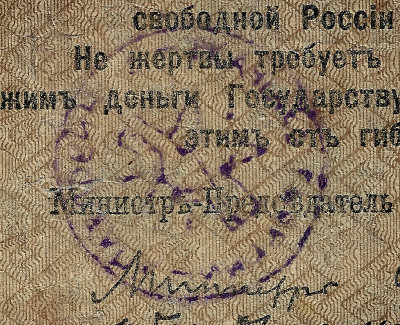 свободной Россіи
Не жертвы требуетъ
жимъ деньги Государству
этимъ отъ гиб
Министръ-Предсѣдатель